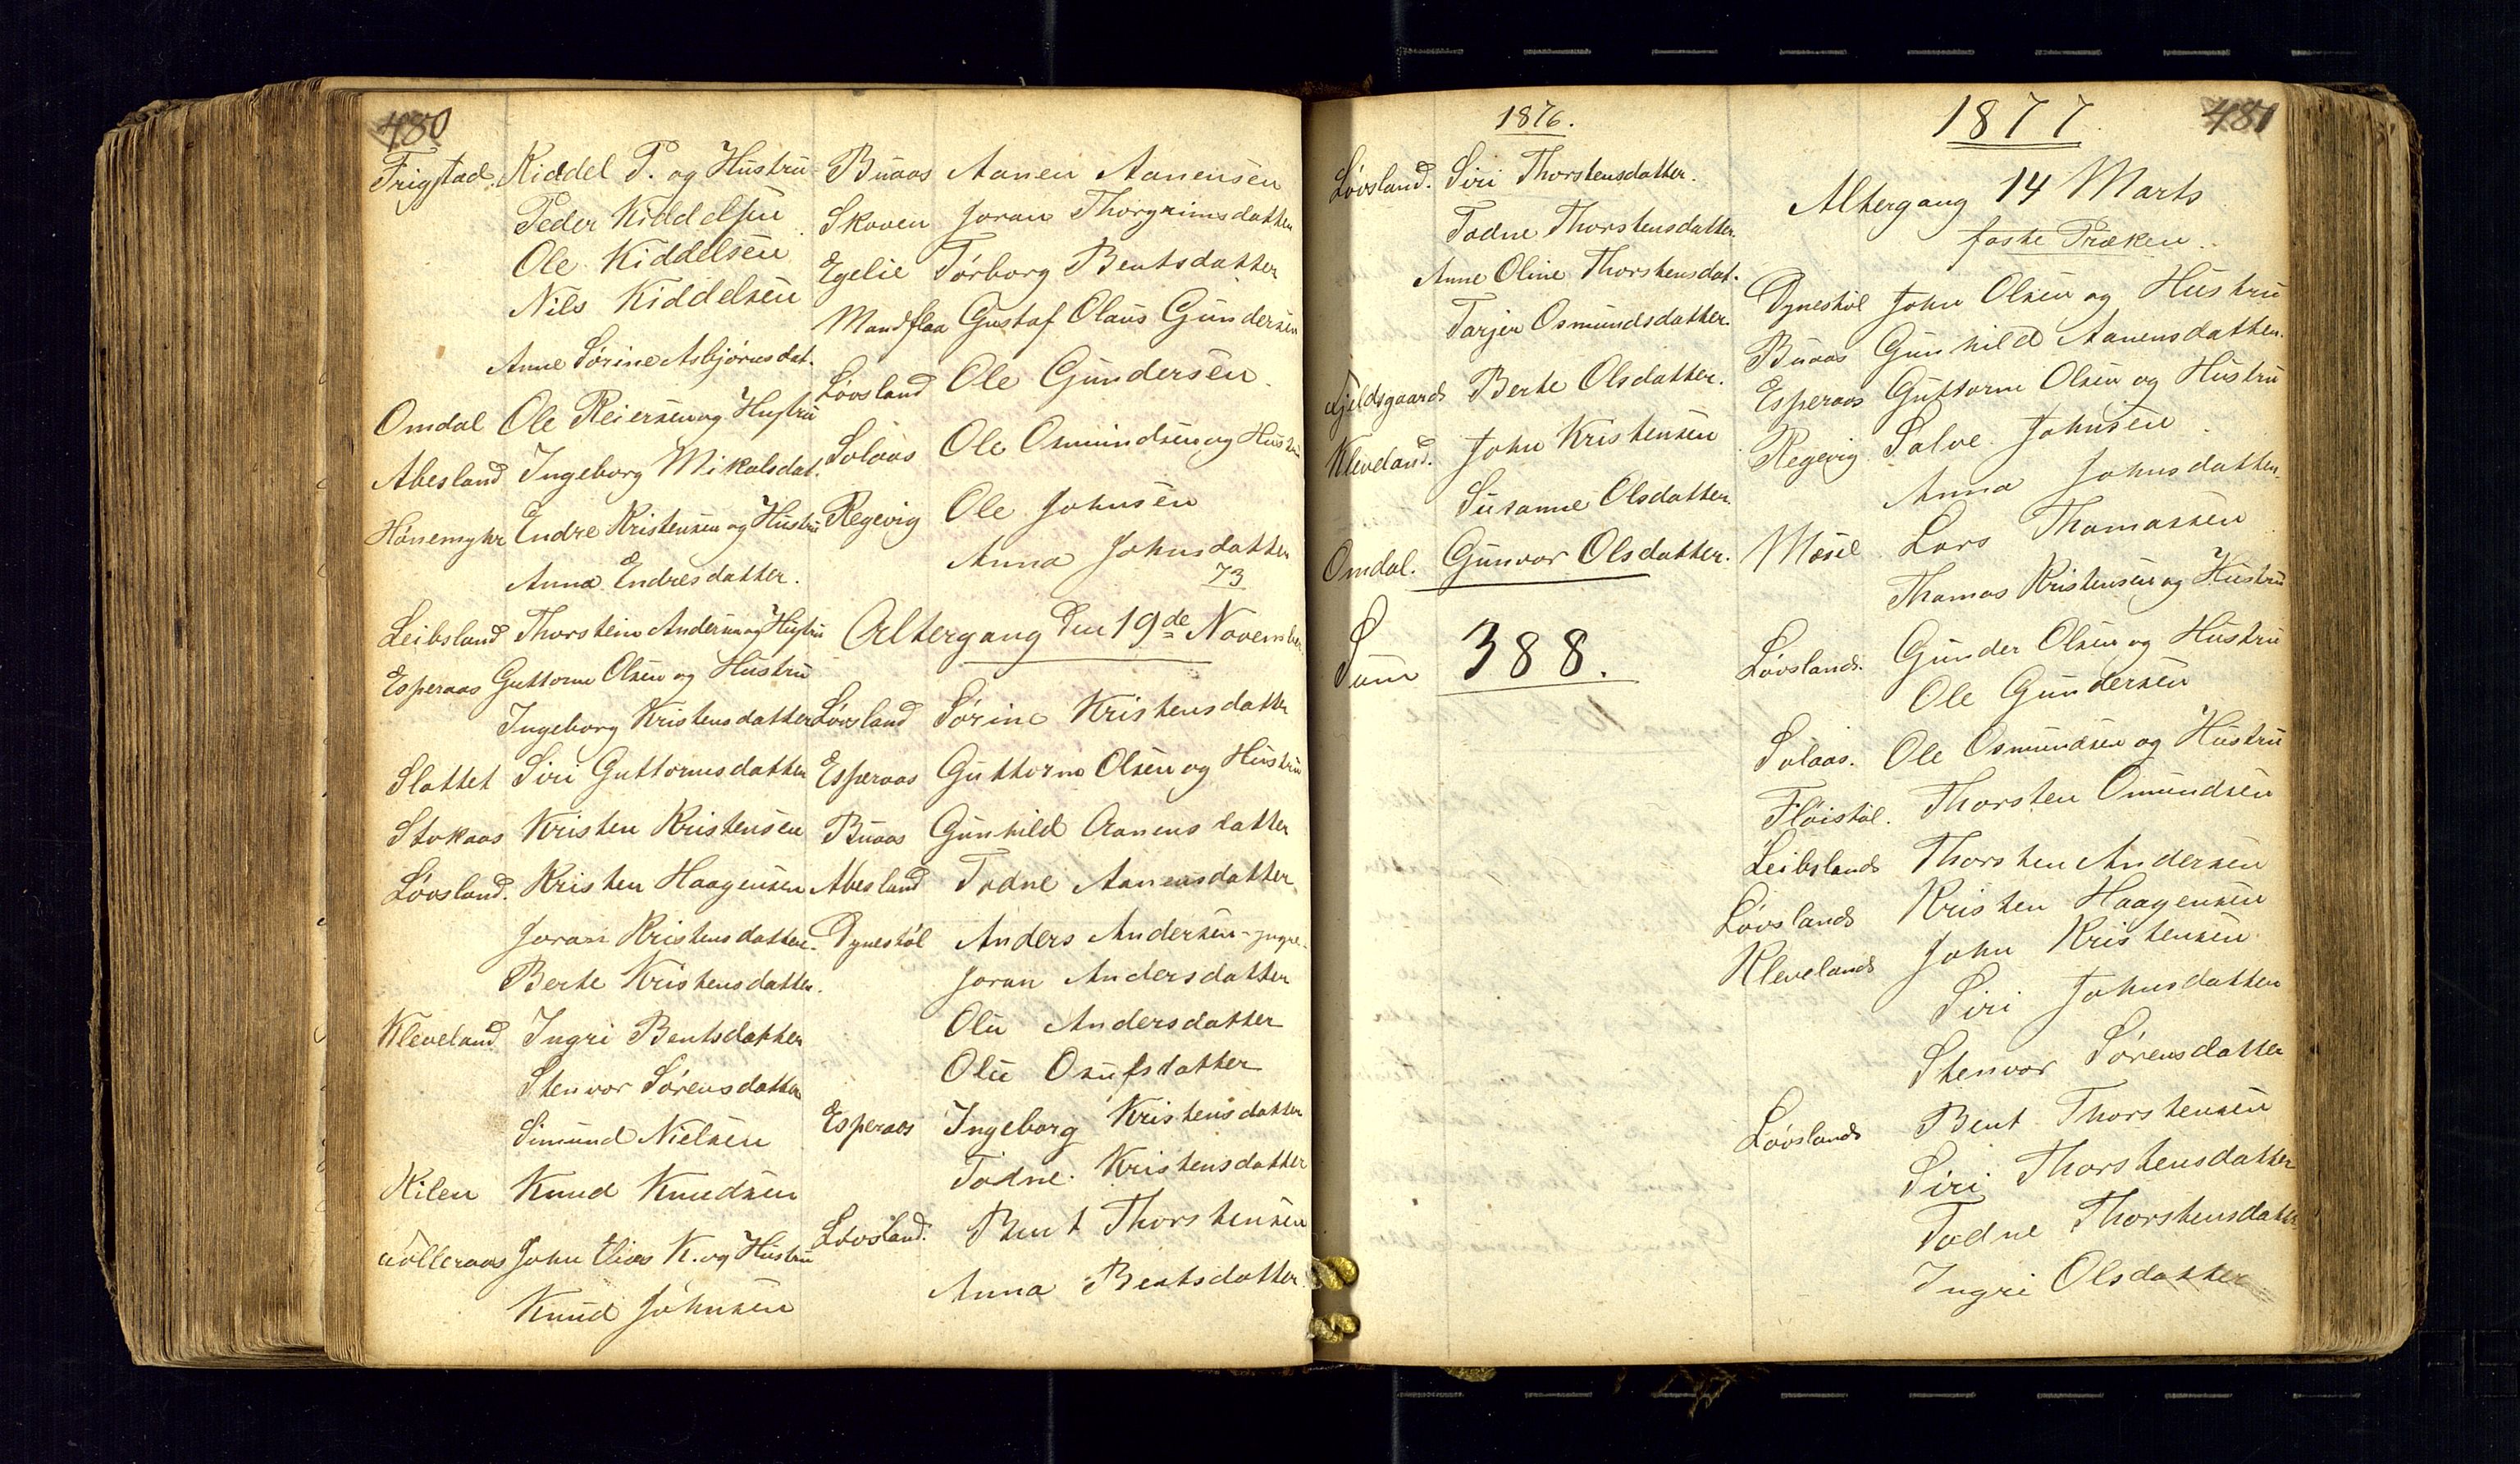 480
Frigstad. Kiddel P. og Hustru
Peder Kiddelsen
Ole Kiddelsen
Nils Kiddelsen
Anne Sørine Asbjørnsdat.
Omdal Ole Reiersen og Hustru
Abesland Ingeborg Mikalsdat.
Hønemyhr Endre Kristensen og Hustru
Anna Endresdatter.
Leibsland Thorstein Andersen og Hustru
Esperaas Guttorm Olsen og Hustru
Ingeborg Kristensdatter
Slottet Siri Guttormsdatter
Stokaas Kristen Kristensen
Løvsland. Kristen Haagensen
Joran Kristensdatter.
Berte Kristensdatter.
Kleveland Ingri Bentsdatter
Stenvor Sørensdatter
Simund Nielsen
Kilen Knud Knudsen
John Elias K. og Hustru
Knud Johnsen
Buaas Aanen Aanensen
Skoven Joran Thorgrimsdatter
Egelie Tørborg Bentsdatter
Mandflaa Gustaf Olaus Gundersen
Løvsland Ole Gundersen
Solaas Ole Osmundsen og Hustru
Regevig Ole Johnsen
Anna Johnsdatter
73
Altergang den 19de November
Løvsland Sørine Kristensdatter
Esperaas Guttorm Olsen og Hustru
Buaas Gunhild Aanensdatter
Abesland Todne Aanensdatter
Dynestøl Anders Andersen - yngre -
Joran Andersdatter
Olu Andersdatter
Olu Osufsdatter
Esperaas Ingeborg Kristensdatter
Todne Kristensdatter
Løvsland. Bent Thorstensen
Anna Bentsdatter
1876.
Løvsland. Siri Thorstensdatter.
Todne Thorstensdatter.
Anne Oline Thorstensdat.
Tarjer Osmundsdatter.
Fjeldsgaards Berte Olsdatter.
Kleveland. John Kristensen
Susanne Olsdatter.
Omdal. Gunvor Olsdatter.
Sum 388.
1877.
481
Altergang 14 Marts
faste Præken.
Dynestøl John Olsen og Hustru
Buaas Gunhild Aanensdatter.
Esperaas Guttorm Olsen og Hustru
Regevig Salve Johnsen
Anna Johnsdatter.
Mæsel Lars Thomassen
Thomas Kristensen og Hustru
Løvslands. Gunder Olsen og Hustru
Ole Gundersen
Solaas. Ole Osmundsen og Hustru
Fløistøl. Thorsten Omundsen
Leibslands Thorsten Andersen
Løvslands Kristen Haagensen
Klevelands John Kristensen
Siri Johnsdatter
Stenvor Sørensdatter
Løvslands Bent Thorstensen
Siri Thorstensdatter
Todne Thorstensdatter
Ingri Olsdatter